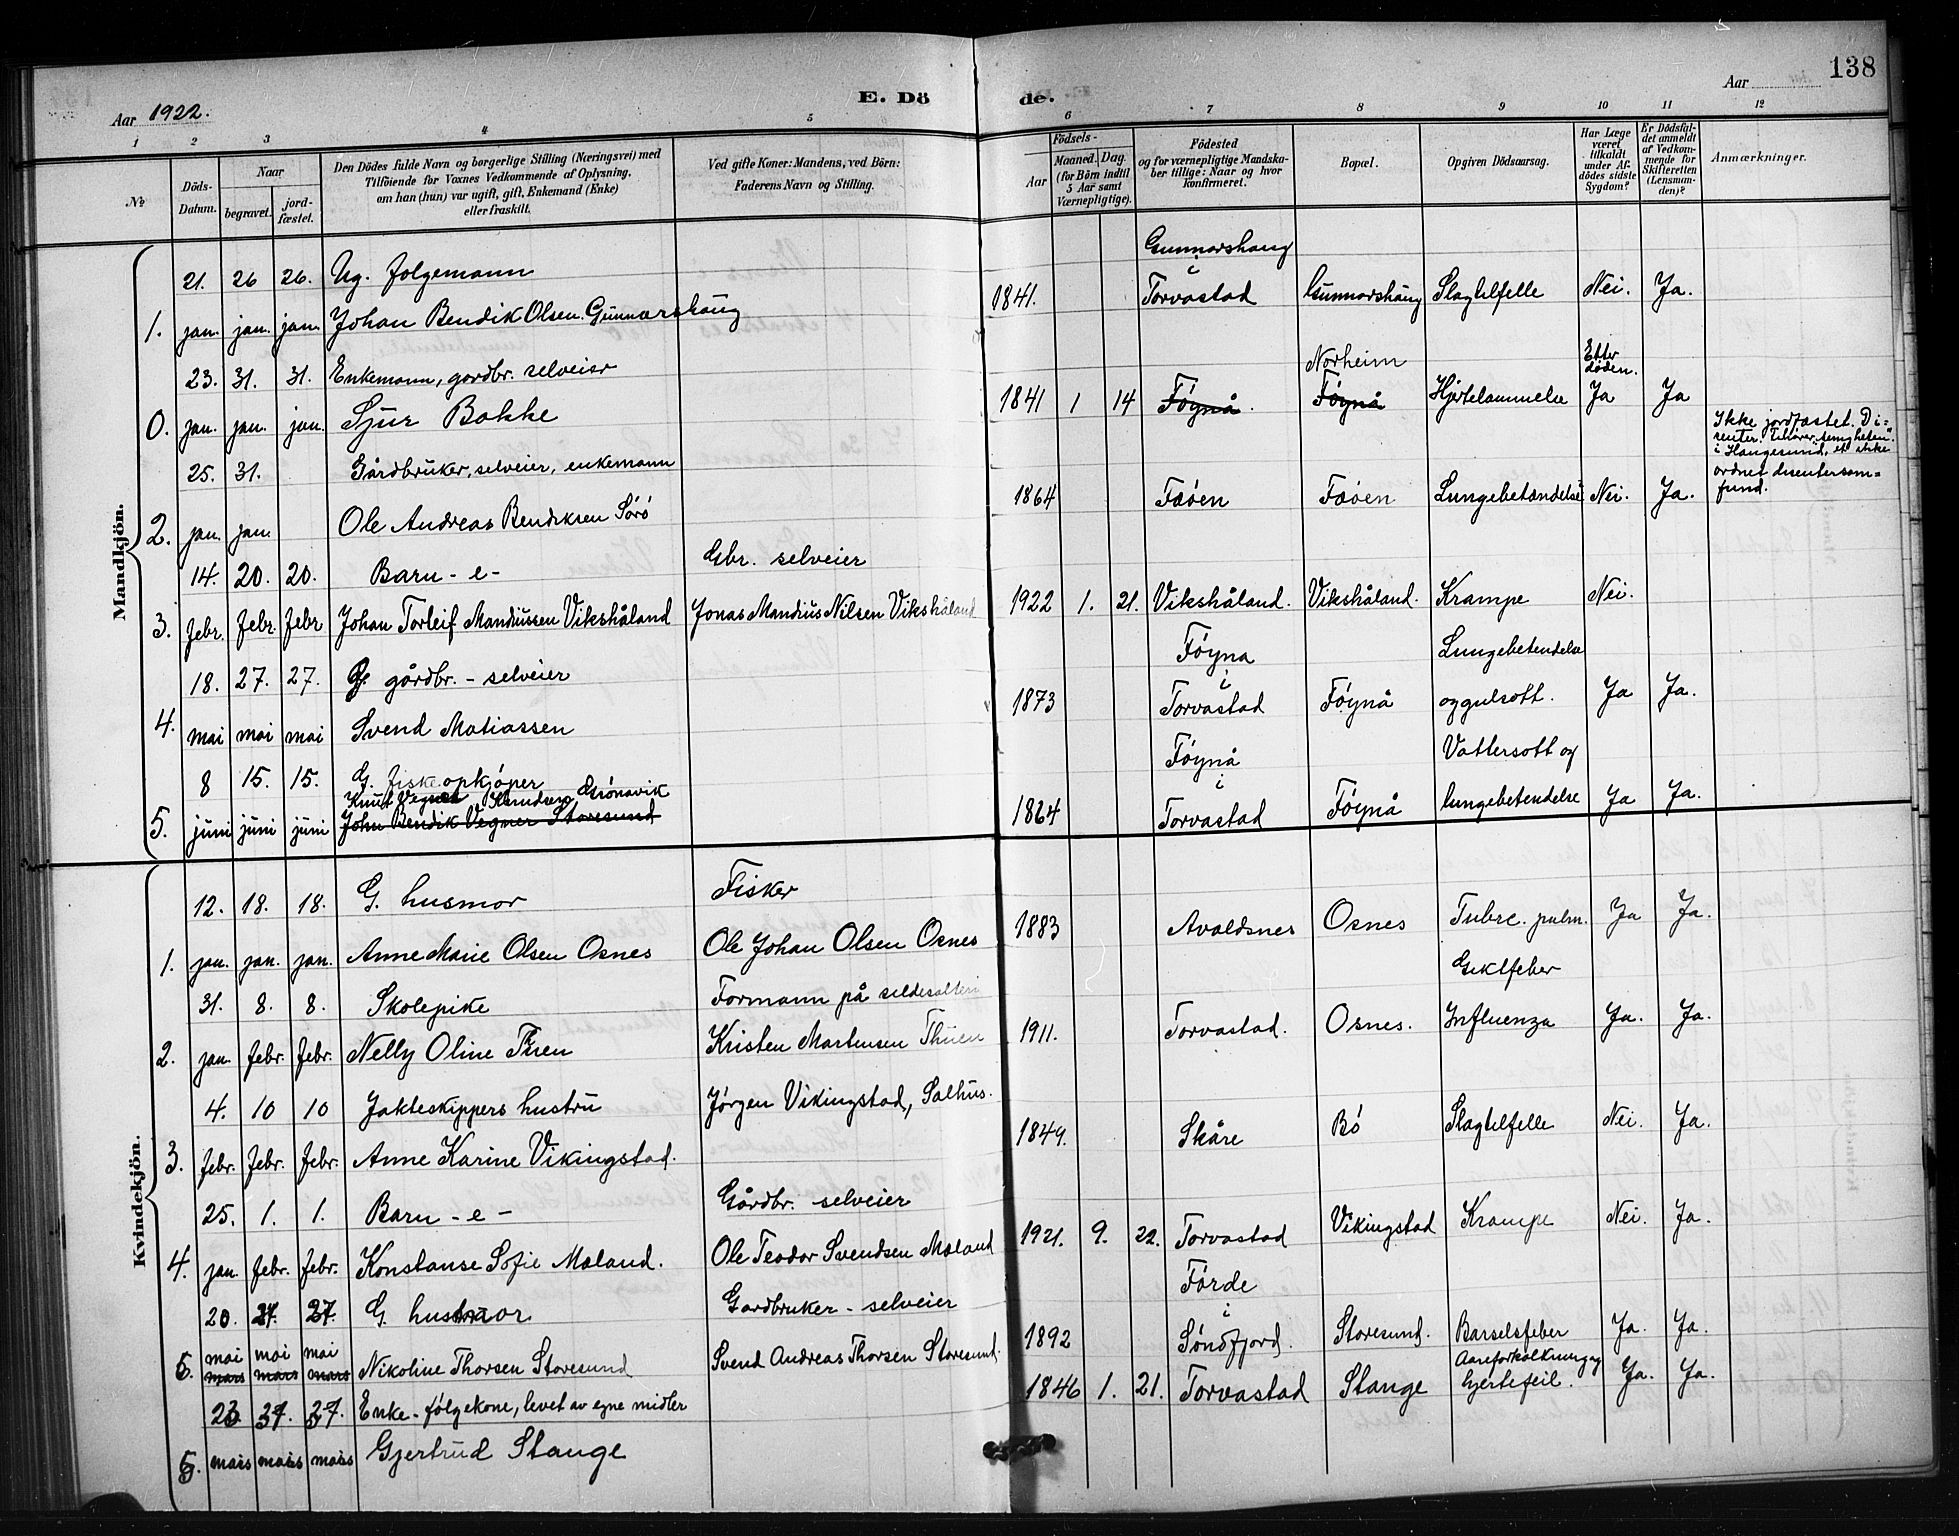 138
Aar 1922.
E. Döde.
Aar
1 2 3 4 5 6 7 8 9 10 11 12
No
Döds-Datum.
Naar
begravet.
jord-fæstet.
Den Dödes fulde Navn og borgerlige Stilling (Næringsvei) med
Tilföiende for Voxnes Vedkommende af Oplysning,
om han (hun) var ugift, gift, Enkemand (Enke)
eller fraskilt.
Ved gifte Koner: Mandens, ved Börn:
Faderens Navn og Stilling.
Födsels-
Aar
Maaned. Dag.
(for Börn indtil
5 Aar samt
Værnepligtige).
Födested
og for værnepligtige Mandska-
ber tillige: Naar og hvor
konfirmeret.
Bopæl.
Opgiven Dödsaarsag.
Har Læge
været
tilkaldt
under Af-
dödes sidste
Sygdom?
Er Dödsfal-
det anmeldt
af Vedkom-
mende for
Skifteretten
(Lensman-
den)?
Anmærkninger.
Mandkjön.
Gunnarshaug
21. 26 26. Ug. folgemann
i
1. jan. jan. jan. Johan Bendik Olsen Gunnarshaug 1841. Torvastad Gunnarshaug Slagtilfelle Nei. Ja.
23. 31. 31. Enkemann, gardbr. selveier Norheim Etter döden.
0. jan. jan. jan. Sjur Bakke 1841 1 14 Föynå. Föynå Hjertelammelse Ja Ja
25. 31. Gårdbruker, selveier, enkemann
2. jan. jan. Ole Andreas Bendiksen Sörö 1864 Fæöen Fæöen Lungebetændelse Nei. Ja.
Ikke jordfæstet. Di=
senter.
i Haugesund, et ikke
ordnet disentersam=
fund.
14. 20. 20. Barn - e - Gbr. selveier
3. febr. febr. febr Johan Torleif Mandiussen Vikshåland Jonas Mandius Nilsen Vikshåland 1922 1. 21. Vikshåland. Vikshåland. Krampe Nei.
18. 27. 27. G. gårdbr. - selveier Föyna Lungebetendelse
i
4. mai mai mai Svend Matiassen 1873 Torvastad Föynå og gulsott. Ja Ja.
8 15. 15. G. fiskeopkjöper Föynå Vattersott og
Knut Vegner Knudsen Grönavik
i
5. juni juni juni John Bendik Vegner Storesund 1864 Torvastad Föynå lungebetendelse Ja Ja.
Kvindekjön.
12. 18. 18. G. husmor Fisker
1. jan. jan. jan. Anne Marie Olsen Osnes Ole Johan Olsen Osnes 1883 Avaldsnes Osnes Tubrc. pulm. Ja Ja.
Giktfeber
31. 8. 8. Skolepike Formann på sildesalteri
2. jan. febr. febr. Nelly Oline Thuen Kristen Martensen Thuen 1911. Torvastad. Osnes. Influenza Ja. Ja.
4. 10 10 Jakteskippers hustru Jörgen Vikingstad, Salhus.
3. febr. febr. febr. Anne Karine Vikingstad. 1849. Skåre Bö Slagtilfelle Nei. Ja.
25. 1. 1. Barn - e - Gårdbr. selveier
4. jan. febr. febr. Konstanse Sofie Maland. Ole Teodor Svendsen Maland 1921. 9. 22. Torvastad Vikingstad Krampe Nei. Ja.
20. 27. G. husmor Gardbruker - selveier Förde
i
mai mai mai
mars mars mars Nikoline Thorsen Storesund Svend Andreas Thorsen Storesund. 1892 Söndfjord. Storesund. Barselsfeber Ja. Ja.
23 Enke - fölgekone, levet av egne midler Aareforkalkning og
mars mars mars Gjertrud Stange 1846 1. 21. Torvastad Stange hjertefeil. Ja. Ja.